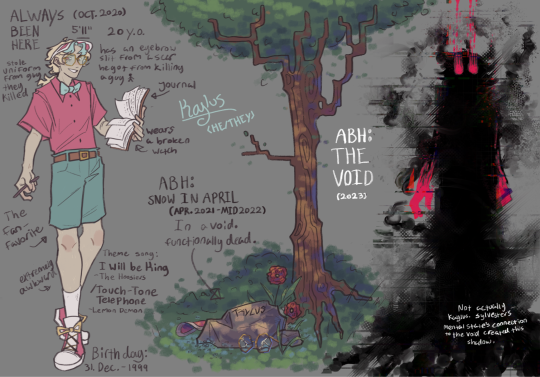 ALWAYS (OCT. 2020)
BEEN
HERE
5'11"
20 y.o.
stole
uniform
from guy
they
killed
has an eyebrow
slit from a scar
he got from killing
a guy
journal
Kaylus
(HE/THEY)
wears
a broken
watch
The
Fan-
Favorite
extremely
awkward
Theme song:
I Will be King
/Touch-Tone
Telephone
-Lemon Demon
Birthday:
31 Dec. - 1999
ABH:
SNOW IN APRIL
(APR. 2021 - MID 2022)
In a void.
functionally dead.
ABH:
THE
VOID
(2023)
Not actually
Kaylus. Sylvester's
mental state's connection
to the void created this
shadow.